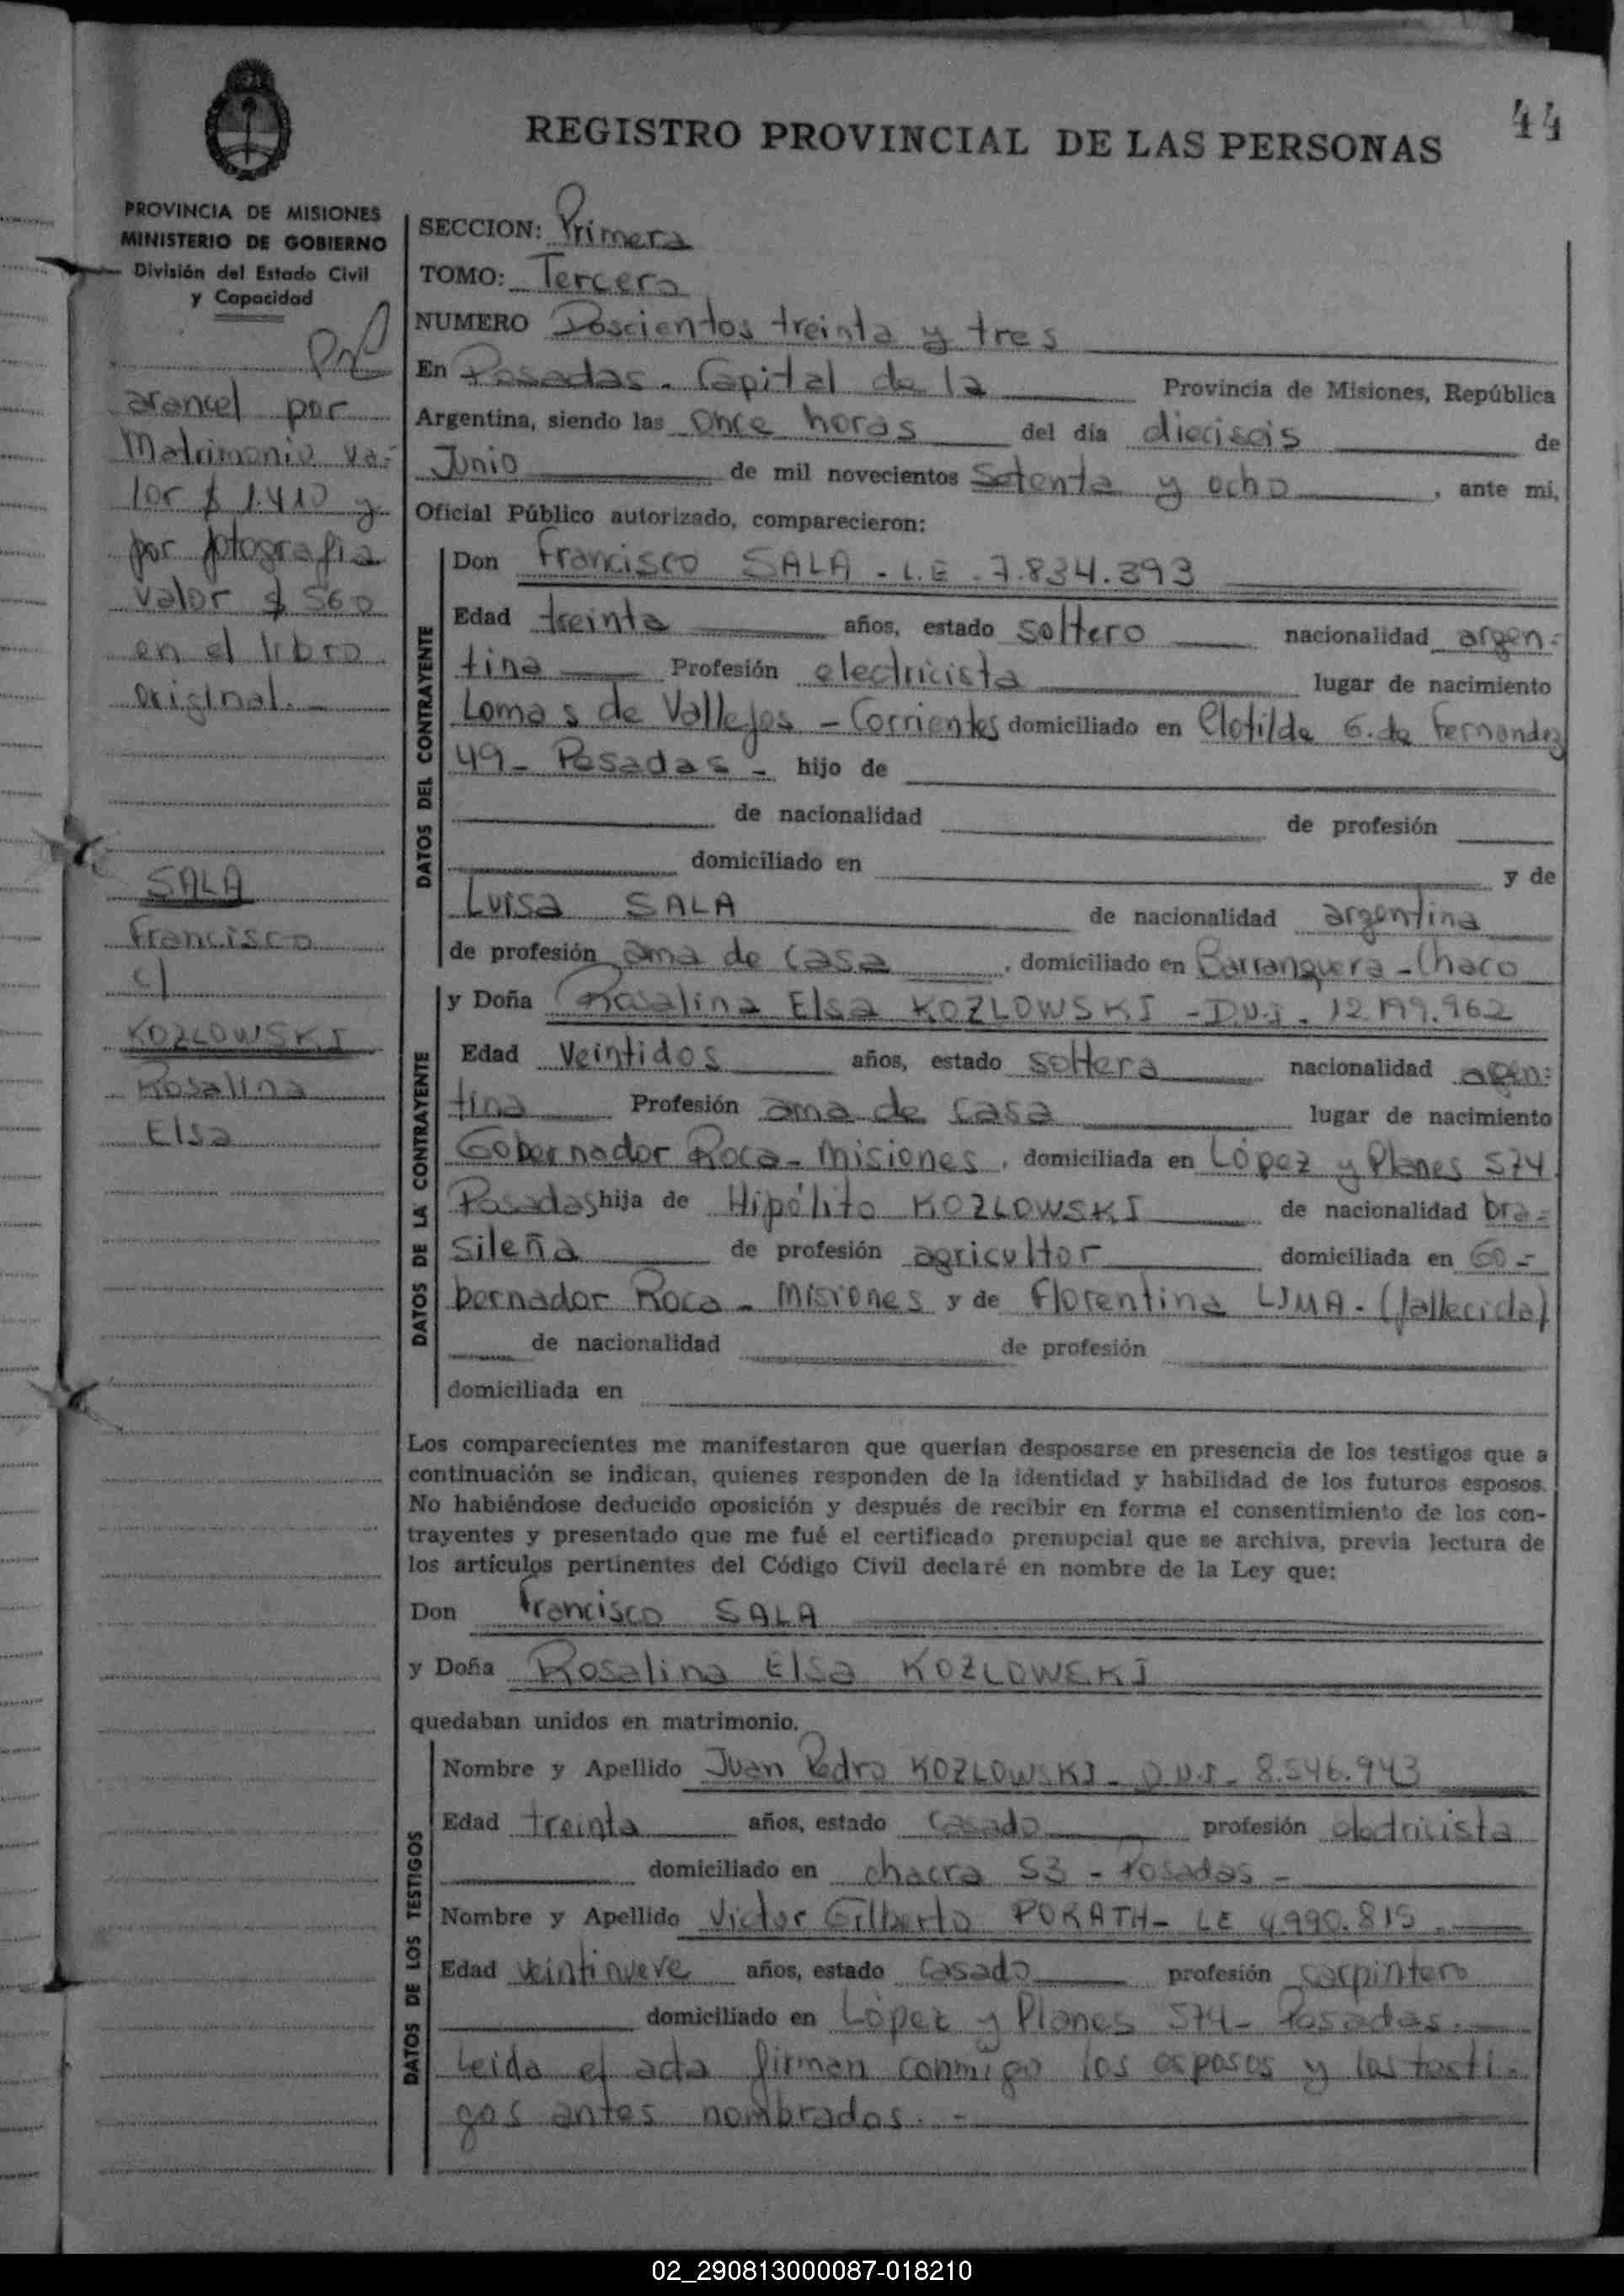 44
REGISTRO PROVINCIAL DE LAS PERSONAS
PROVINCIA DE MISIONES
MINISTERIO DE GOBIERNO
División del Estado Civil
y Capacidad
arancel por
Matrimonio va-
lor $ 1.410 y
por fotografia
valor $ 560
en el libro
original. -
SALA
Francisco
c/
KOZLOWSKI
Rosalina
Elsa
SECCION: Primera
TOMO: Tercero
NUMERO Doscientos treinta y tres
En Posadas. Capital de la Provincia de Misiones, República
Argentina, siendo las once horas del día dieciseis de
Junio de mil novecientos setenta y ocho, ante mi,
Oficial Público autorizado, comparecieron:
DATOS DEL CONTRAYENTE
Don Francisco SALA - L.E. 7.834.393
Edad treinta años, estado soltero nacionalidad argen-
tina Profesión electricista lugar de nacimiento
Lomas de Vallejos - Corrientes domiciliado en Clotilde G. de Fernandez
49 - Posadas - hijo de
de nacionalidad de profesión
domiciliado en y de
Luisa SALA de nacionalidad argentina
de profesión ama de casa, domiciliado en Barranquera - Chaco
DATOS DE LA CONTRAYENTE
y Doña Rosalina Elsa KOZLOWSKI - D.N.I. 12.199.962
Edad Veintidos años, estado soltera nacionalidad agen-
tina Profesión ama de casa lugar de nacimiento
Gobernador Roca - Misiones, domiciliada en López y Planes 574
Posadas hija de Hipólito KOZLOWSKI de nacionalidad bra-
sileña de profesión agricultor domiciliada en Go-
bernador Roca - Misiones y de Florentina LIMA - (fallecida)
de nacionalidad de profesión
domiciliada en
Los comparecientes me manifestaron que querían desposarse en presencia de los testigos que a
continuación se indican, quienes responden de la identidad y habilidad de los futuros esposos.
No habiéndose deducido oposición y después de recibir en forma el consentimiento de los con-
trayentes y presentado que me fué el certificado prenupcial que se archiva, previa lectura de
los artículos pertinentes del Código Civil declaré en nombre de la Ley que:
Don Francisco SALA
y Doña Rosalina Elsa KOZLOWSKI
quedaban unidos en matrimonio.
DATOS DE LOS TESTIGOS
Nombre y Apellido Juan Pedro KOZLOWSKI - D.N.I. 8.546.943
Edad treinta años, estado casado profesión electricista
domiciliado en chacra 53 - Posadas -
Nombre y Apellido Victor Gilberto PORATH - LE 4.990.815
Edad veintinueve años, estado casado profesión carpintero
domiciliado en López y Planes 574 - Posadas.
Leida el acta firman conmigo los esposos y los testi-
gos antes nombrados. -
02_290813000087-018210